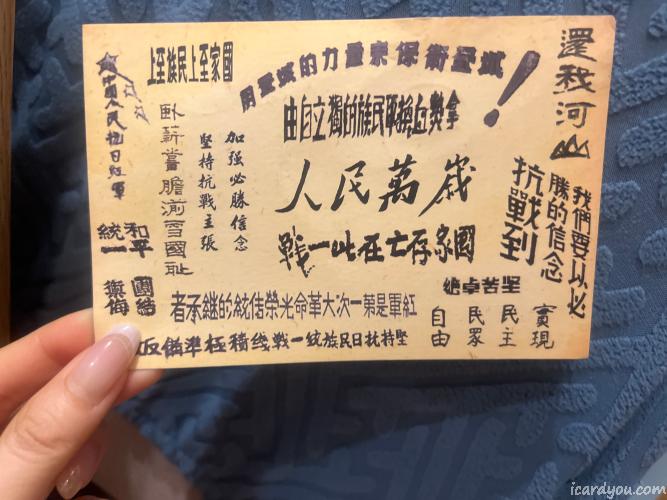 國家至上民族至上
的力量來保衛
！
還我河山
拿熱血換取民族的獨立自由
人民萬歲
國家存亡在此一戰
我們要以必
勝的信念
抗戰到
加强必勝信念
堅持抗戰主張
臥薪嘗膽湔雪國耻
中國人民抗日紅軍
和平
統一
團結
禦侮
堅苦卓絕
實現
民主
民眾
自由
紅軍是第一次大革命光榮傳統的繼承者
堅持抗日民族統一戰線積極準備反
icardyou.com